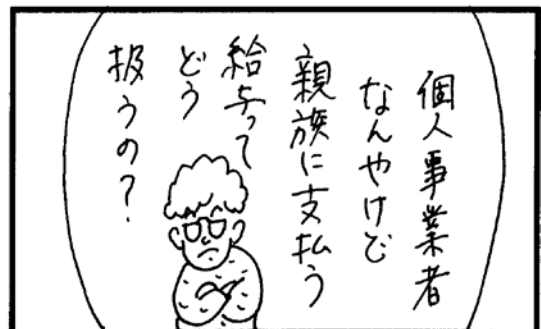 個人事業者
なんやけど
親族に支払う
給与って
どう
扱うの?